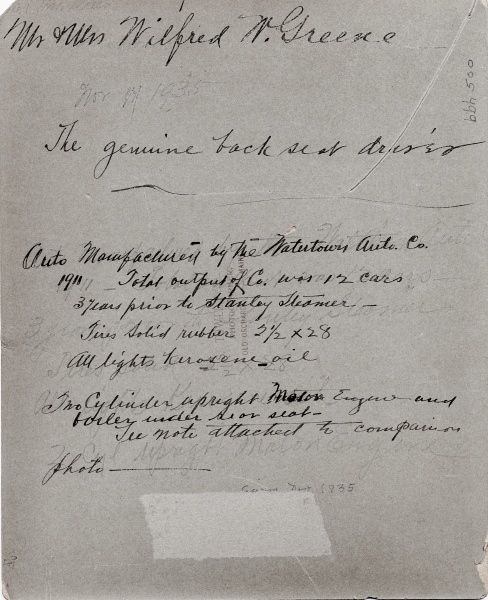 Mr & Mrs Wilfred W. Greene
Nov 1935
bbh 500
The genuine back seat driver
Auto Manufactured by the Watertown Auto. Co.
1911 Total output of Co. was 12 cars
3 years prior to Stanley Steamer —
Tires Solid rubber 2½ x 28
All lights Kerosene oil
Two Cylinder upright Engine and
boiler under rear seat —
See note attached to comparison
photo —
1935